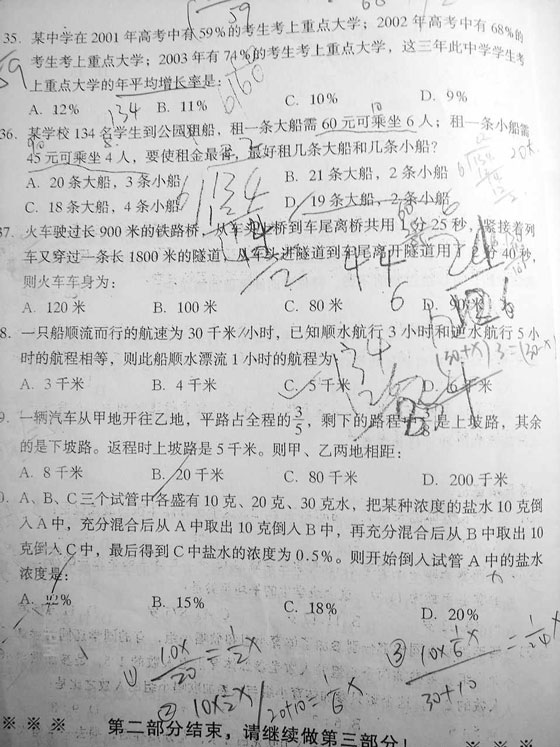 35. 某中学在 2001 年高考中有 59%的考生考上重点大学；2002 年高考中有 68%的
考生考上重点大学；2003 年有 74%的考生考上重点大学，这三年此中学学生考
上重点大学的年平均增长率是：
A. 12% B. 11% C. 10% D. 9%
36. 某学校 134 名学生到公园租船，租一条大船需 60 元可乘坐 6 人；租一条小船需
45 元可乘坐 4 人，要使租金最省，最好租几条大船和几条小船？
A. 20 条大船，3 条小船 B. 21 条大船，2 条小船
C. 18 条大船，4 条小船 D. 19 条大船，2 条小船
37. 火车驶过长 900 米的铁路桥，从车头上桥到车尾离桥共用 1 分 25 秒，紧接着列
车又穿过一条长 1800 米的隧道，从车头进隧道到车尾离开隧道用了 2 分 40 秒，
则火车车身为：
A. 120 米 B. 100 米 C. 80 米 D. 90 米
8. 一只船顺流而行的航速为 30 千米/小时，已知顺水航行 3 小时和逆水航行 5 小
时的航程相等，则此船顺水漂流 1 小时的航程为
A. 3 千米 B. 4 千米 C. 5 千米 D. 6 千米
9. 一辆汽车从甲地开往乙地，平路占全程的3/5，剩下的路程中是上坡路，其余
的是下坡路。返程时上坡路是 5 千米。则甲、乙两地相距：
A. 8 千米 B. 20 千米 C. 80 千米 D. 200 千米
0. A、B、C 三个试管中各盛有 10 克、20 克、30 克水，把某种浓度的盐水 10 克倒
入 A 中，充分混合后从 A 中取出 10 克倒入 B 中，再充分混合后从 B 中取出 10
克倒入 C 中，最后得到 C 中盐水的浓度为 0.5%。则开始倒入试管 A 中的盐水
浓度是：
A. 12% B. 15% C. 18% D. 20%
① 10x/20 = 1/2x
② 10×1/2x/20+10 = 1/6x
③ 10×1/6x/30+10 = 1/24x
※ ※ ※ 第二部分结束，请继续做第三部分！ ※ ※ ※